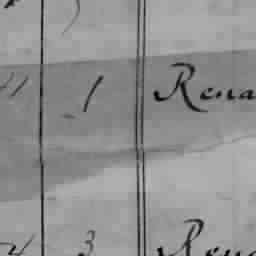 11 1 Rena
4 3 Ren